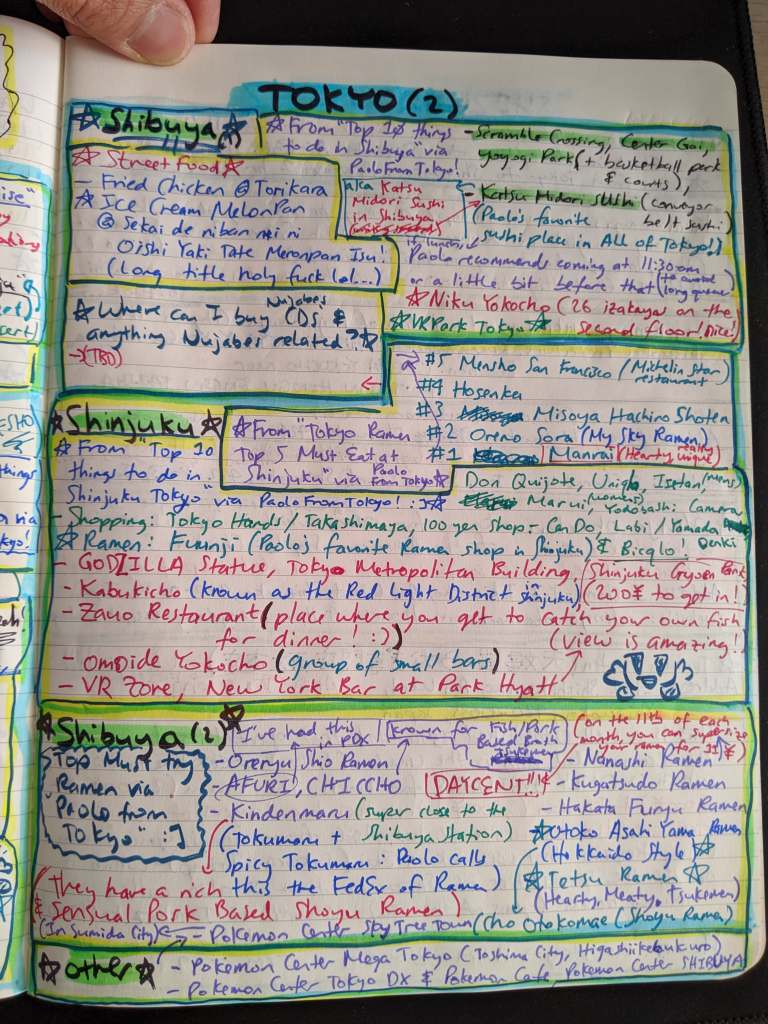 TOKYO (2)
☆Shibuya☆
☆From "Top 10 things
to do in Shibuya" via
Paolo From Tokyo!
- Scramble Crossing, Center Gai,
Yoyogi Park (+ basketball park
& courts),
- Katsu Midori Sushi (conveyor
belt sushi)
(Paolo's favorite
sushi place in All of Tokyo!)
aka Katsu
Midori Sushi
in Shibuya
Paolo recommends coming at 11:30am
or a little bit before that (to avoid
long queue)
☆Niku Yokocho (26 izakayas on the
second floor! Nice!
☆VR Park Tokyo☆
☆Street Food☆
- Fried Chicken @ Torikara
☆ Ice Cream MelonPan
@ Sekai de niban mei ni
Oishi Yaki Tate Meronpan Isu!
(Long title holy fuck lol...)
☆Where can I buy Nujabes CDs &
anything Nujabes related?☆
→(TBD)
#5 Mensho San Francisco / Michelin Star
restaurant
#4 Hosenka
#3 Misoya Hachiro Shoten
#2 Oreno Sora (My Sky Ramen)
#1 Manrai (Hearty, really unique)
☆Shinjuku☆
☆From "Tokyo Ramen
Top 5 Must Eat at
Shinjuku" via Paolo
from Tokyo☆
☆From "Top 10
things to do in
Shinjuku Tokyo" via Paolo From Tokyo! :]☆
Don Quijote, Uniqlo, Isetan, (mens)
Marui, (womens) Yodobashi Camera
- Shopping: Tokyo Hands / Takashimaya, 100 yen shop - Can Do, Labi / Yamada Denki
☆Ramen: Fuunji (Paolo's favorite Ramen shop in Shinjuku) & Bicqlo!
- GODZILLA Statue, Tokyo Metropolitan Building, Shinjuku Gyoen Park,
(200¥ to get in!)
- Kabukicho (known as the Red Light District in Shinjuku)
- Zauo Restaurant (place where you get to catch your own fish
for dinner! :))
(view is amazing!)
- Omoide Yokocho (group of small bars)
- VR Zone, New York Bar at Park Hyatt
☆Shibuya (2)☆
Top Must try
Ramen via
Paolo from
Tokyo" :]
I've had this in PDX
known for Fish/Pork
Based Broth
Tsukemen
(on the 11th of each
month you can supersize
your ramen for 11¥)
- Orenyu Shio Ramen
- AFURI, CHICCHO
DAYCENT!!
- Kindenmaru (super close to the
Shibuya Station)
(Tokumaru +
Spicy Tokumaru: Paolo calls
this the FedEx of Ramen)
(They have a rich
& Sensual Pork Based Shoyu Ramen)
- Nanashi Ramen
- Kugatsudo Ramen
- Hakata Furyu Ramen
☆Otoko Asahi Yama Ramen
(Hokkaido Style)☆
☆Tetsu Ramen☆
(Hearty, Meaty, Tsukemen)
Cho Otokomae (Shoyu Ramen)
(In Sumida City) ← - Pokemon Center Sky Tree Town
☆Other☆
- Pokemon Center Mega Tokyo (Toshima City, Higashiikebukuro)
- Pokemon Center Tokyo DX & Pokemon Cafe, Pokemon Center SHIBUYA